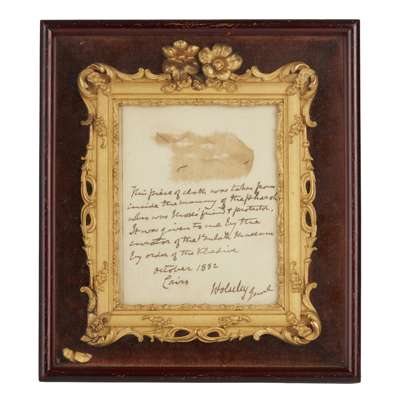 This piece of cloth was taken from
inside the mummy of the Pharoh
who was Moses' friend & protector.
It was given to me by the
curator of the Bulak Museum
by order of the Khedive
October 1882
Cairo
Wolseley